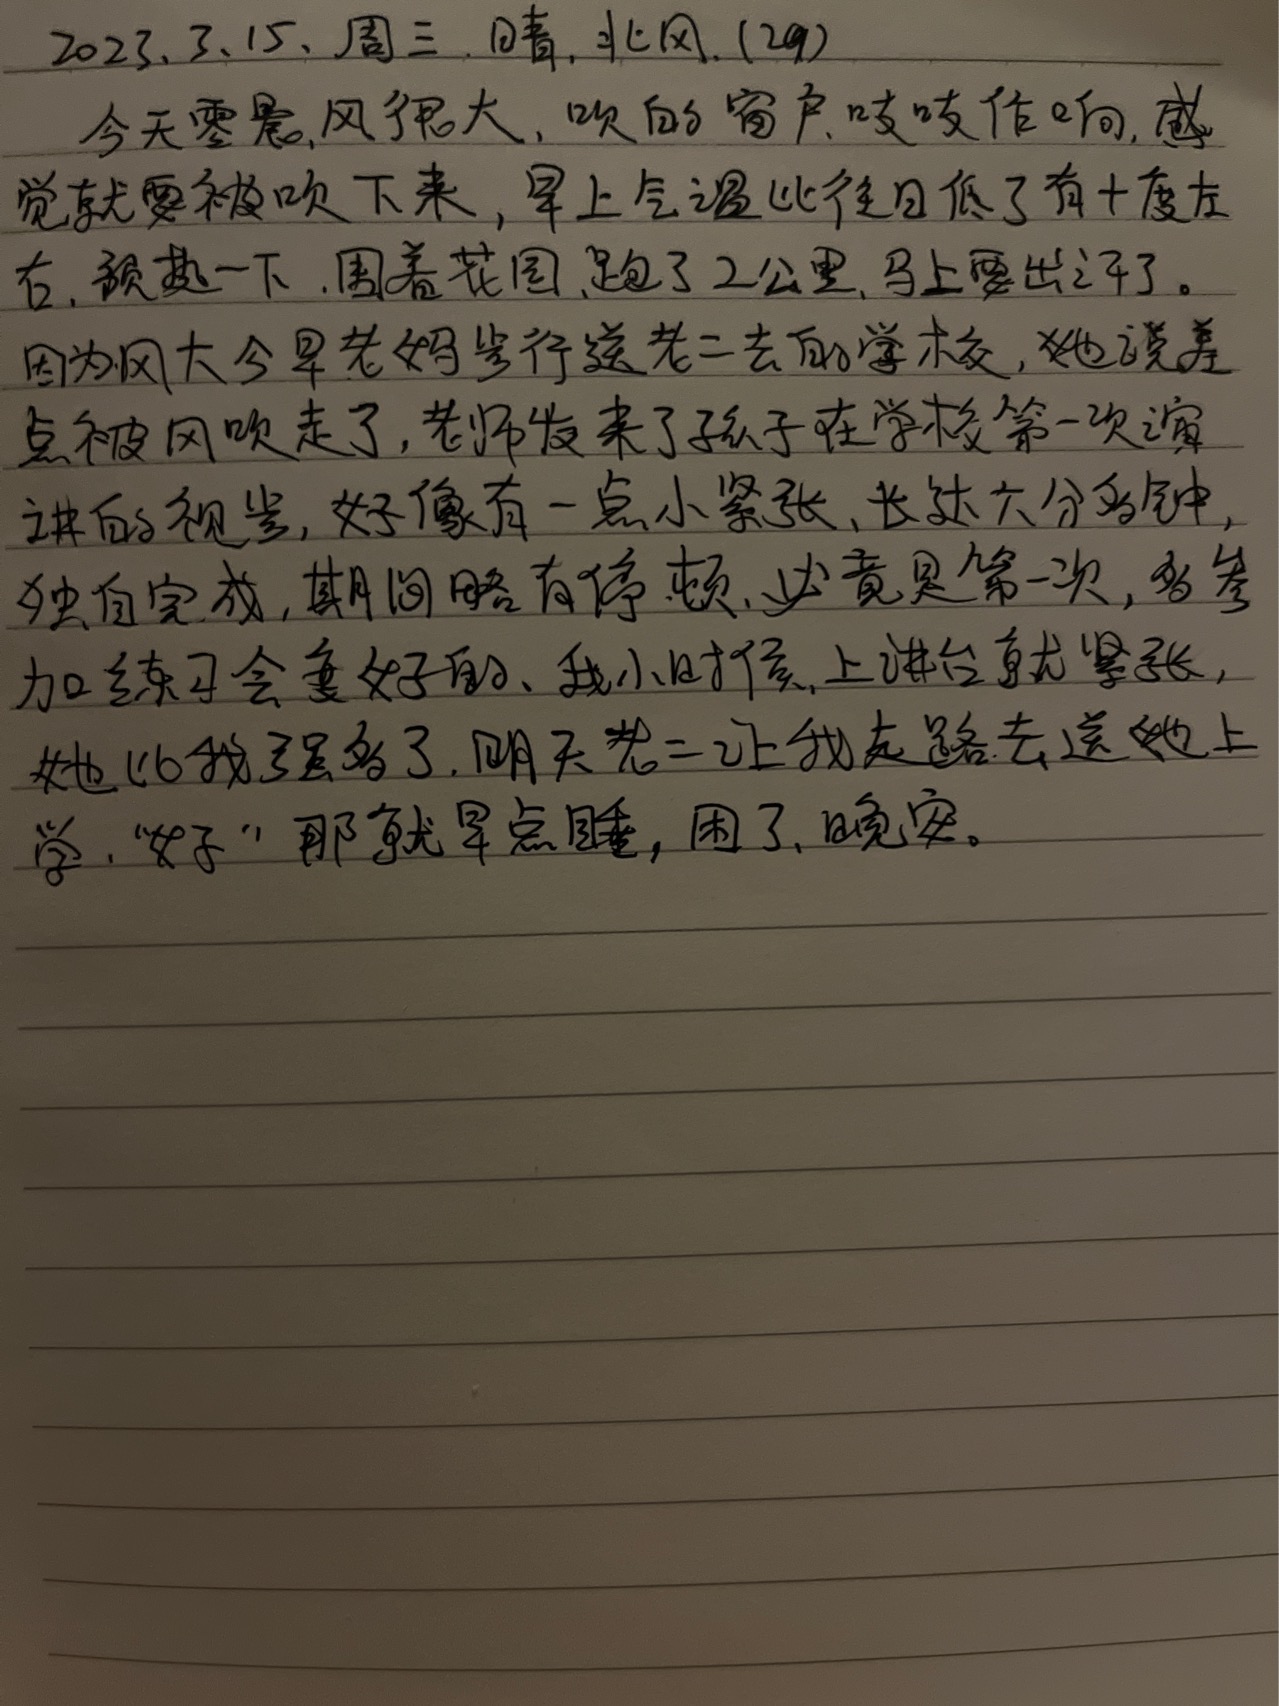 2023.3.15、周三.晴.北风.(29)
今天零晨,风很大,吹的窗户,吱吱作响,感
觉就要被吹下来,早上气温比往日低了有十度左
右,预热一下,围着花园,跑了2公里,马上要出汗了。
因为风大今早老妈步行送老二去的学校,她说差
点被风吹走了,老师发来了孩子在学校第一次演
讲的视频,好像有一点小紧张、长达六分多钟,
独自完成,期间略有停顿、必竟是第一次,多参
加练习会更好的、我小时侯,上讲台就紧张,
她比我强多了.明天老二让我走路去送她上
学.“好”那就早点睡,困了、晚安。